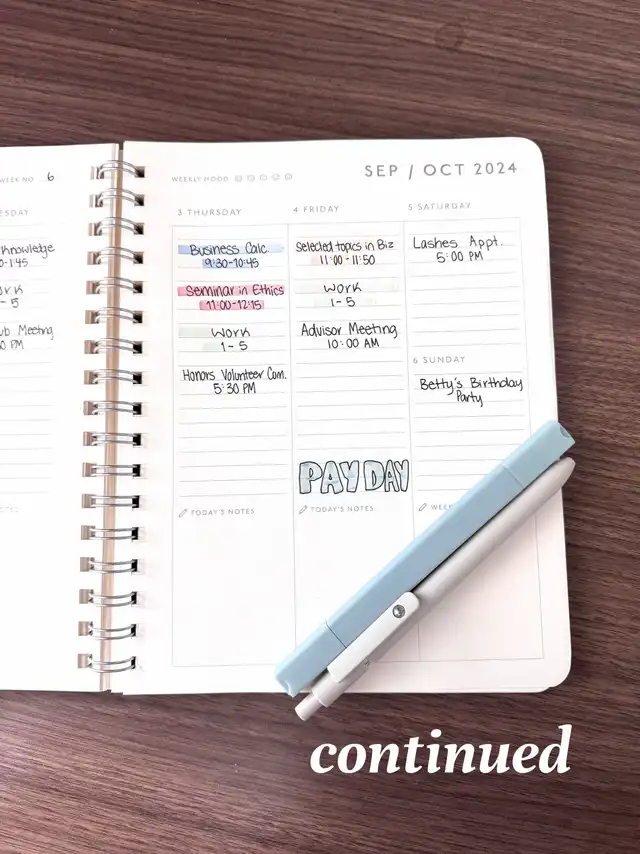 WEEK NO. 6
Knowledge
WEEKLY MOOD
SEP / OCT 2024
3 THURSDAY
Business Calc.
9:30-10:45
Seminar in Ethics
11:00-12:15
Work
1-5
Honors Volunteer Com.
5:30 PM
TODAY'S NOTES
4 FRIDAY
Selected topics in Biz
11:00-11:50
Work
1-5
Advisor Meeting
10:00 AM
PAY DAY
TODAY'S NOTES
5 SATURDAY
Lashes Appt.
5:00 PM
6 SUNDAY
Betty's Birthday
Party
continued